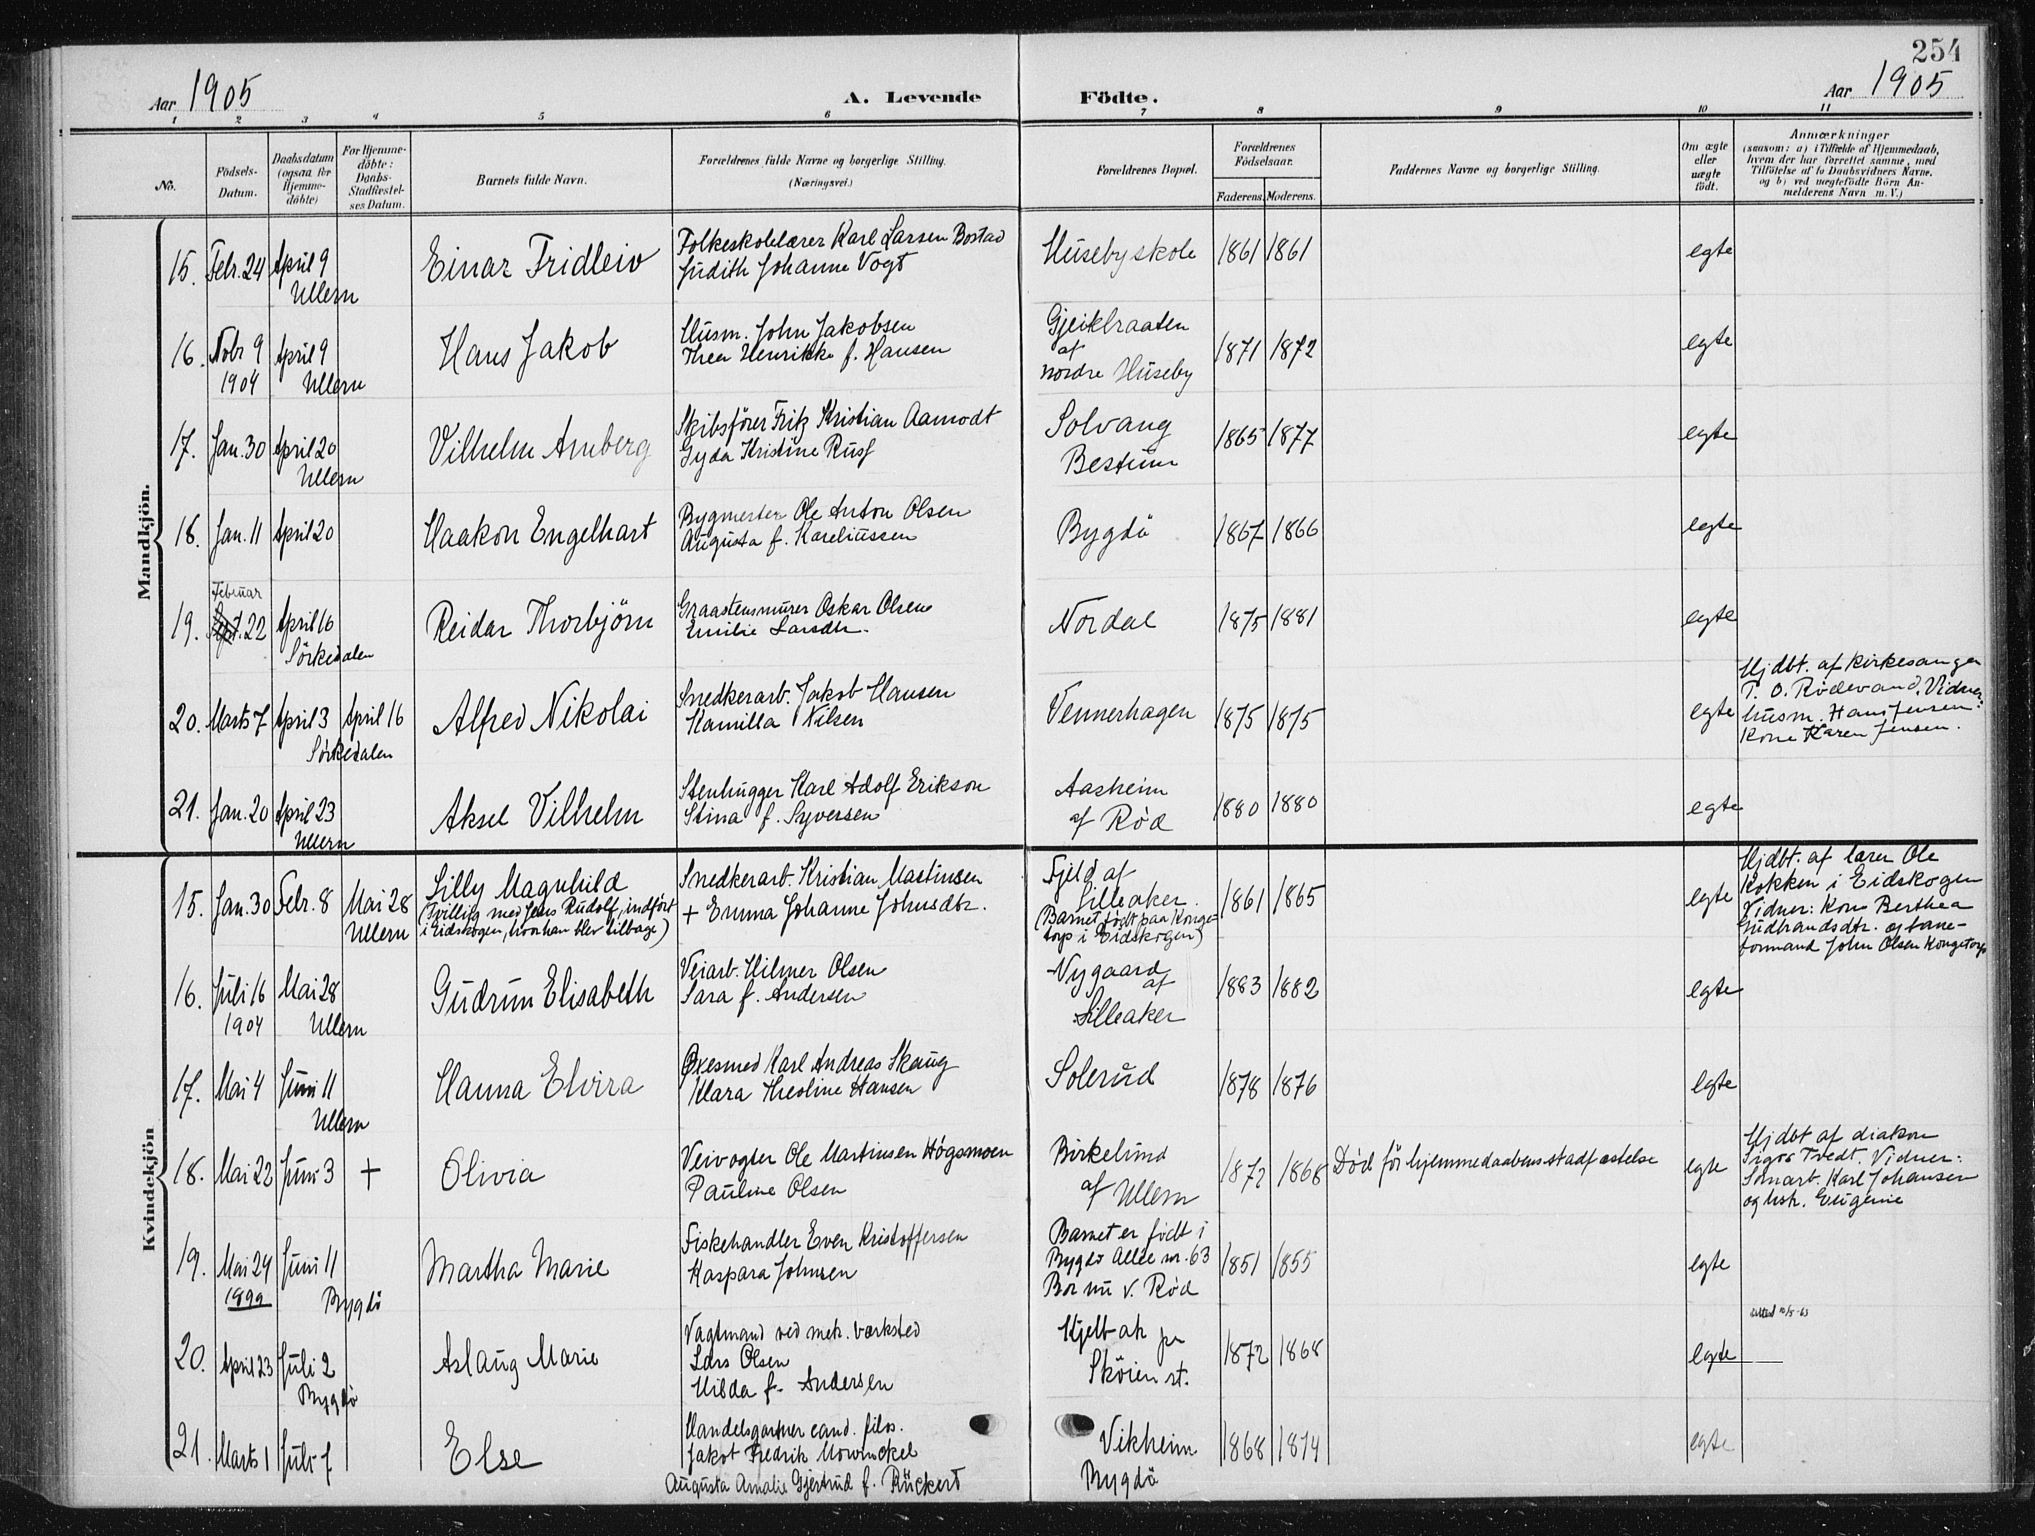 254
Aar 1905
A. Levende Födte.
Aar 1905
1 2 3 4 5 6 7 8 9 10 11
No.
Födsels-Datum.
Daabsdatum (ogsaa for Hjemme-döbte)
For Hjemme-döbte: Daabs-Stadfæstel-ses Datum.
Barnets fulde Navn.
Forældrenes fulde Navne og borgerlige Stilling.
(Næringsvei.)
Forældrenes Bopæl.
Forældrenes Födselsaar.
Faderens. Moderens.
Faddernes Navne og borgerlige Stilling.
Om ægte eller uægte födt.
Anmærkninger
(saasom: a) i Tilfælde af Hjemmedaab,
hvem der har forrettet samme, med
Tilföielse af to Daabsvidners Navne,
og b) ved uægtefödte Börn An-
melderens Navn m. V.)
Mandkjön.
15. Febr. 24 April 9 Ullern
Einar Fridleiv
Folkeskolelærer Karl Larsen Bostad
Judith Johanne Vogt
Husebyskole 1861 1861 egte
16. Nobr 9 1904 April 9 Ullern
Hans Jakob
Husm. John Jakobsen
Thea Henrikke f. Hansen
Gjeikbraaten
af
nordre Huseby
1871 1872 egte
17. Jan. 30 April 20 Ullern
Vilhelm Amberg
Skibsfører Fritz Kristian Aamodt
Gyda Kristine Rusf
Solvang
Bestum
1865 1877 egte
18. Jan. 11 April 20
Haakon Engelhart
Bygmester Ole Anton Olsen
Augusta f. Kareliussen
Bygdö 1867 1866 egte
19. Februar 22 April 16 Sörkedalen
Reidar Thorbjörn
Graastensmurer Oskar Olsen
Emilie Larsdtr.
Nordal 1875 1881 egte
20. Marts 7 April 3 April 16 Sörkedalen
Alfred Nikolai
Snedkerarb. Jakob Hansen
Kamilla Nilsen
Vennerhagen 1875 1875 egte
Hjdbt. af kirkesanger
T. O. Rödevand. Vidner:
husm. Hans Jensen.
Kone Karen Jensen.
21. Jan. 20 April 23 Ullern
Aksel Vilhelm
Stenhugger Karl Adolf Erikson
Stina f. Syversen
Aasheim
af Röd
1880 1880 egte
Kvindekjön
15. Jan. 30 Febr. 8 Mai 28 Ullern
Lilly Magnhild
(Tvilling med Jens Rudolf, indfört
i Eidskogen, hvor han blev tilbage)
Snedkerarb. Kristian Martinsen
+ Emma Johanne Johnsdtr.
Fjeld af
Lilleaker.
(Barnet födt paa Konge-
torp i Eidskogen)
1861 1865 egte
Hjdbt. af lærer Ole
Kokken i Eidskogen
Vidner: Kone Berthea
Gudbrandsdtr. og bane-
formand John Olsen Kongetorp
16. Juli 16 1904 Mai 28 Ullern
Gudrun Elisabeth
Veiarb. Hilmer Olsen
Sara f. Andersen
Nygaard
af
Lilleaker
1883 1882 egte
17. Mai 4 Juni 11 Ullern
Hanna Elvira
Øxesmed Karl Andreas Skaug
Klara Theoline Hansen
Solerud 1878 1876 egte
18. Mai 22 Juni 3 +
Olivia
Veivogter Ole Martinsen Högsmoen
Pauline Olsen
Birkelund
af Ullern
1872 1868
Död för hjemmedaabens stadfæstelse
egte
Hjdbt af diakon
Tvedt. Vidner:
Karl Johansen
og hstr. Eugenie
19. Mai 24 1899 Juni 11 Bygdö
Martha Marie
Fiskehandler Even Kristoffersen
Kaspara Johnsen
Barnet er födt i
Bygdö Allee nr. 63
Bor nu v. Röd
1851 1855 egte
20. April 23 Juli 2 Bygdö
Aslaug Marie
Vagtmand ved mek. værksted
Lars Olsen
Hilda f. Andersen
Skøien st.
1872 1868 egte
21. Marts 1 Juli 7
Else
Handelsgartner cand. filos.
Jakob Fredrik Mowinckel
Augusta Amalie Gjertrud f. Rückert
Vikheim
Bygdö
1868 1874 egte